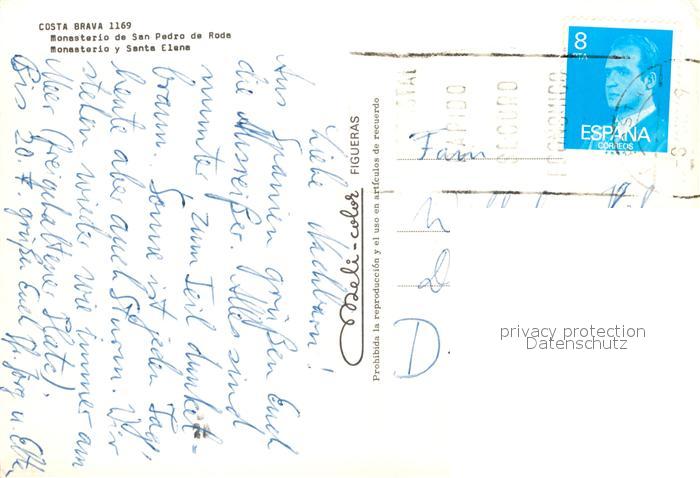 COSTA BRAVA 1169
Monasterio de San Pedro de Roda
Monasterio y Santa Elena
Liebe Nachbarn!
Aus Spanien grüßen Euch
die Ausreißer. Alle sind
munter, zum Teil dunkel-
braun. Sonne ist jeden Tag,
heute aber auch Sturm. Wir
stehen wieder wie immer am
Meer (Freigehaltener Platz)
Bis 30. grüßen Euch Jörg u.
Meli-color FIGUERAS
Prohibida la reproducción y el uso en artículos de recuerdo
8
PTA
ESPAÑA
CORREOS
RAPIDO
SEGURO
ECONOMICO
Fam
D
privacy protection
Datenschutz